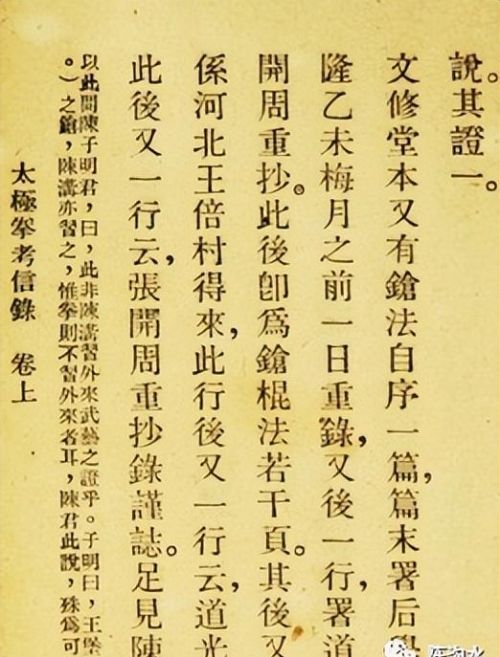 說。其證一。
文修堂本又有鎗法自序一篇，篇末署后
隆乙未梅月之前一日重錄，又後一行，署道
開周重抄。此後卽爲鎗棍法若干頁。其後又
係河北王倍村得來，此行後又一行云，道光
此後又一行云，張開周重抄錄謹誌。足見陳
以此問陳子明君，曰，此非陳溝習外來武藝之證乎。子明曰，王堡
。）之鎗，陳溝亦習之，惟拳則不習外來者耳，陳君此說，殊爲可
太極拳考信錄 卷上